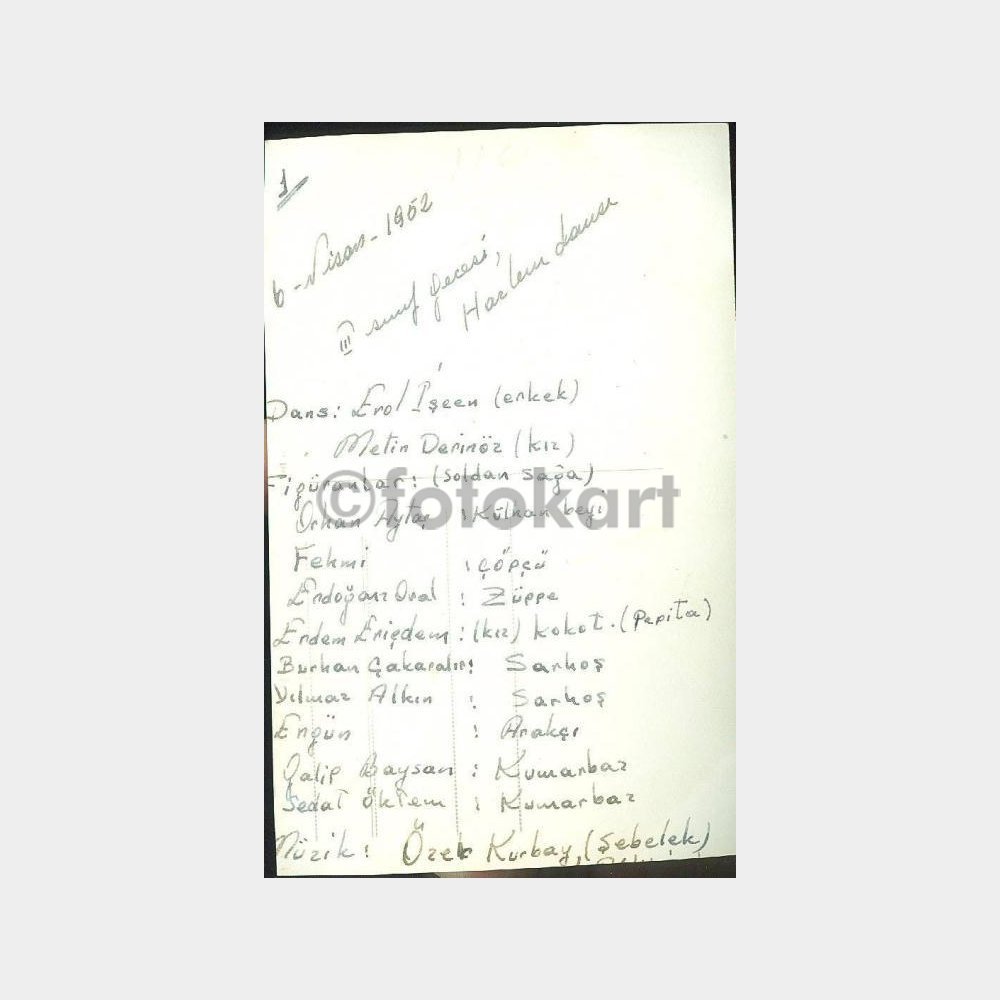 1
6 - Nisan - 1952
III sınıf gecesi,
Harlem dansı
Dans: Erol İşeen (erkek)
Metin Derinöz (kız)
Figüranlar: (soldan sağa)
©fotokart
Orhan Aytaç : Külhan beyi
Fehmi : Çöpçü
Erdoğan Oral : Züppe
Erdem Eriçdem : (kız) kokot. (Pepita)
Burhan Çakaralır: Sarhoş
Yılmaz Alkın : Sarhoş
Engün : Arakçı
Galip Baysan : Kumarbaz
Sedat Öktem : Kumarbaz
Müzik: Özer Kurbay, (Şebelek)